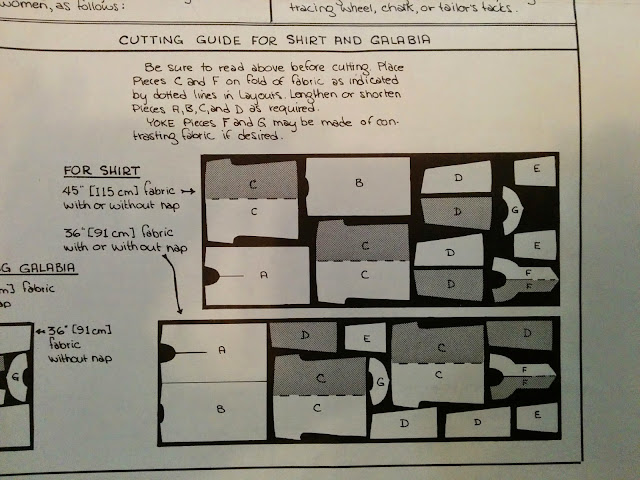 women, as follows:
tracing wheel, chalk, or tailor's tacks.
CUTTING GUIDE FOR SHIRT AND GALABIA
Be sure to read above before cutting. Place
Pieces C and F on fold of fabric as indicated
by dotted lines in Layouts. Lengthen or shorten
Pieces A, B, C, and D as required.
YOKE Pieces F and G may be made of con-
trasting fabric if desired.
FOR SHIRT
45" [115 cm] fabric
with or without nap
C
C
B
D
D
E
G
A
C
C
D
D
E
F
F
36" [91 cm] fabric
with or without nap
A
B
D
C
C
E
G
C
C
D
D
D
F
F
E
G GALABIA
m] fabric
ap
36" [91cm]
fabric
without nap
G